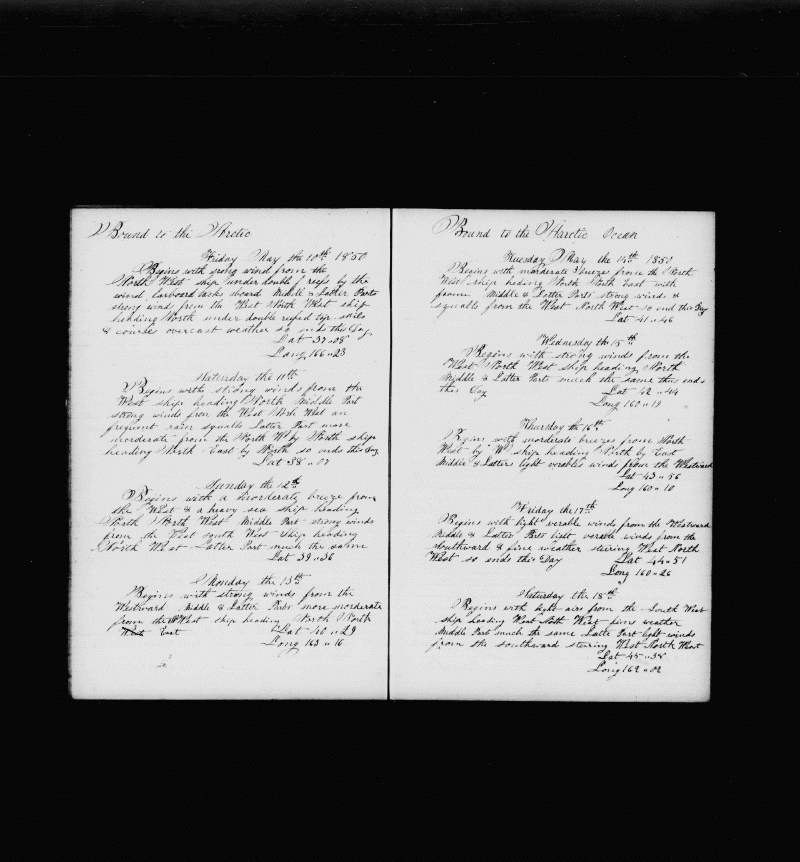 Bound to the Arctic
Friday May the 10th 1850
Begins with srong wind from the
North West ship under double reefs by the
wind larboard tacks aboard Middle & Latter Parts
strong winds from the West North West ship
heading North under double reefed top sails
& courses overcast weather so ends this Day
Lat 37 " 08
Long 166 " 23
Saturday the 11th
Begins with winds from the
West ship heading North Middle Part
strong winds from the West North West an
frequent rain squalls Latter Part more
morderate from the North W by North ship
heading North East by North so ends this Day
Lat 38 " 07
Sunday the 12th
Begins with a morderate breeze from
the West & a heavy sea ship heading
North North West Middle Part strong winds
from the West south West ship heading
North West Latter Part much the same
Lat 39 " 36
Monday the 13th
Begins with strong winds from the
Westward Middle & Latter Parts more morderate
from the West ship heading North North
East Lat 40 " 29
Long 163 " 16
Bound to the Harctic Ocean
Tuesday May the 14th 1850
Begins with morderate breezes from the North
West ship heding North North East with
Middle & Latter Parts strong winds &
squalls from the West North West so end this Day
Lat 41 " 46
Wednesday the 15th
Begins with strong winds from the
West North West ship heading North
Middle & Latter Parts much the same thus ends
this Day Lat 42 " 44
Long 160 " 19
Thursday the 16th
Begins with morderate breezes from North
West by W ship heading North by East
Middle & Latters light verables winds from the Westward
Lat 43 " 56
Long 160 " 10
Friday the 17th
Begins with light verable winds from the Westward
Middle & Latter Parts light verable winds from the
Southward & fine weather steering West North
West so ends this Day Lat 44 " 51
Long 160 " 26
Saturday the 18th
Begins with light airs from the South West
ship heading West North West fine weather
Middle Part much the same Latte Part light winds
from the southward steering West North West
Lat 45 " 38
Long 162 " 02